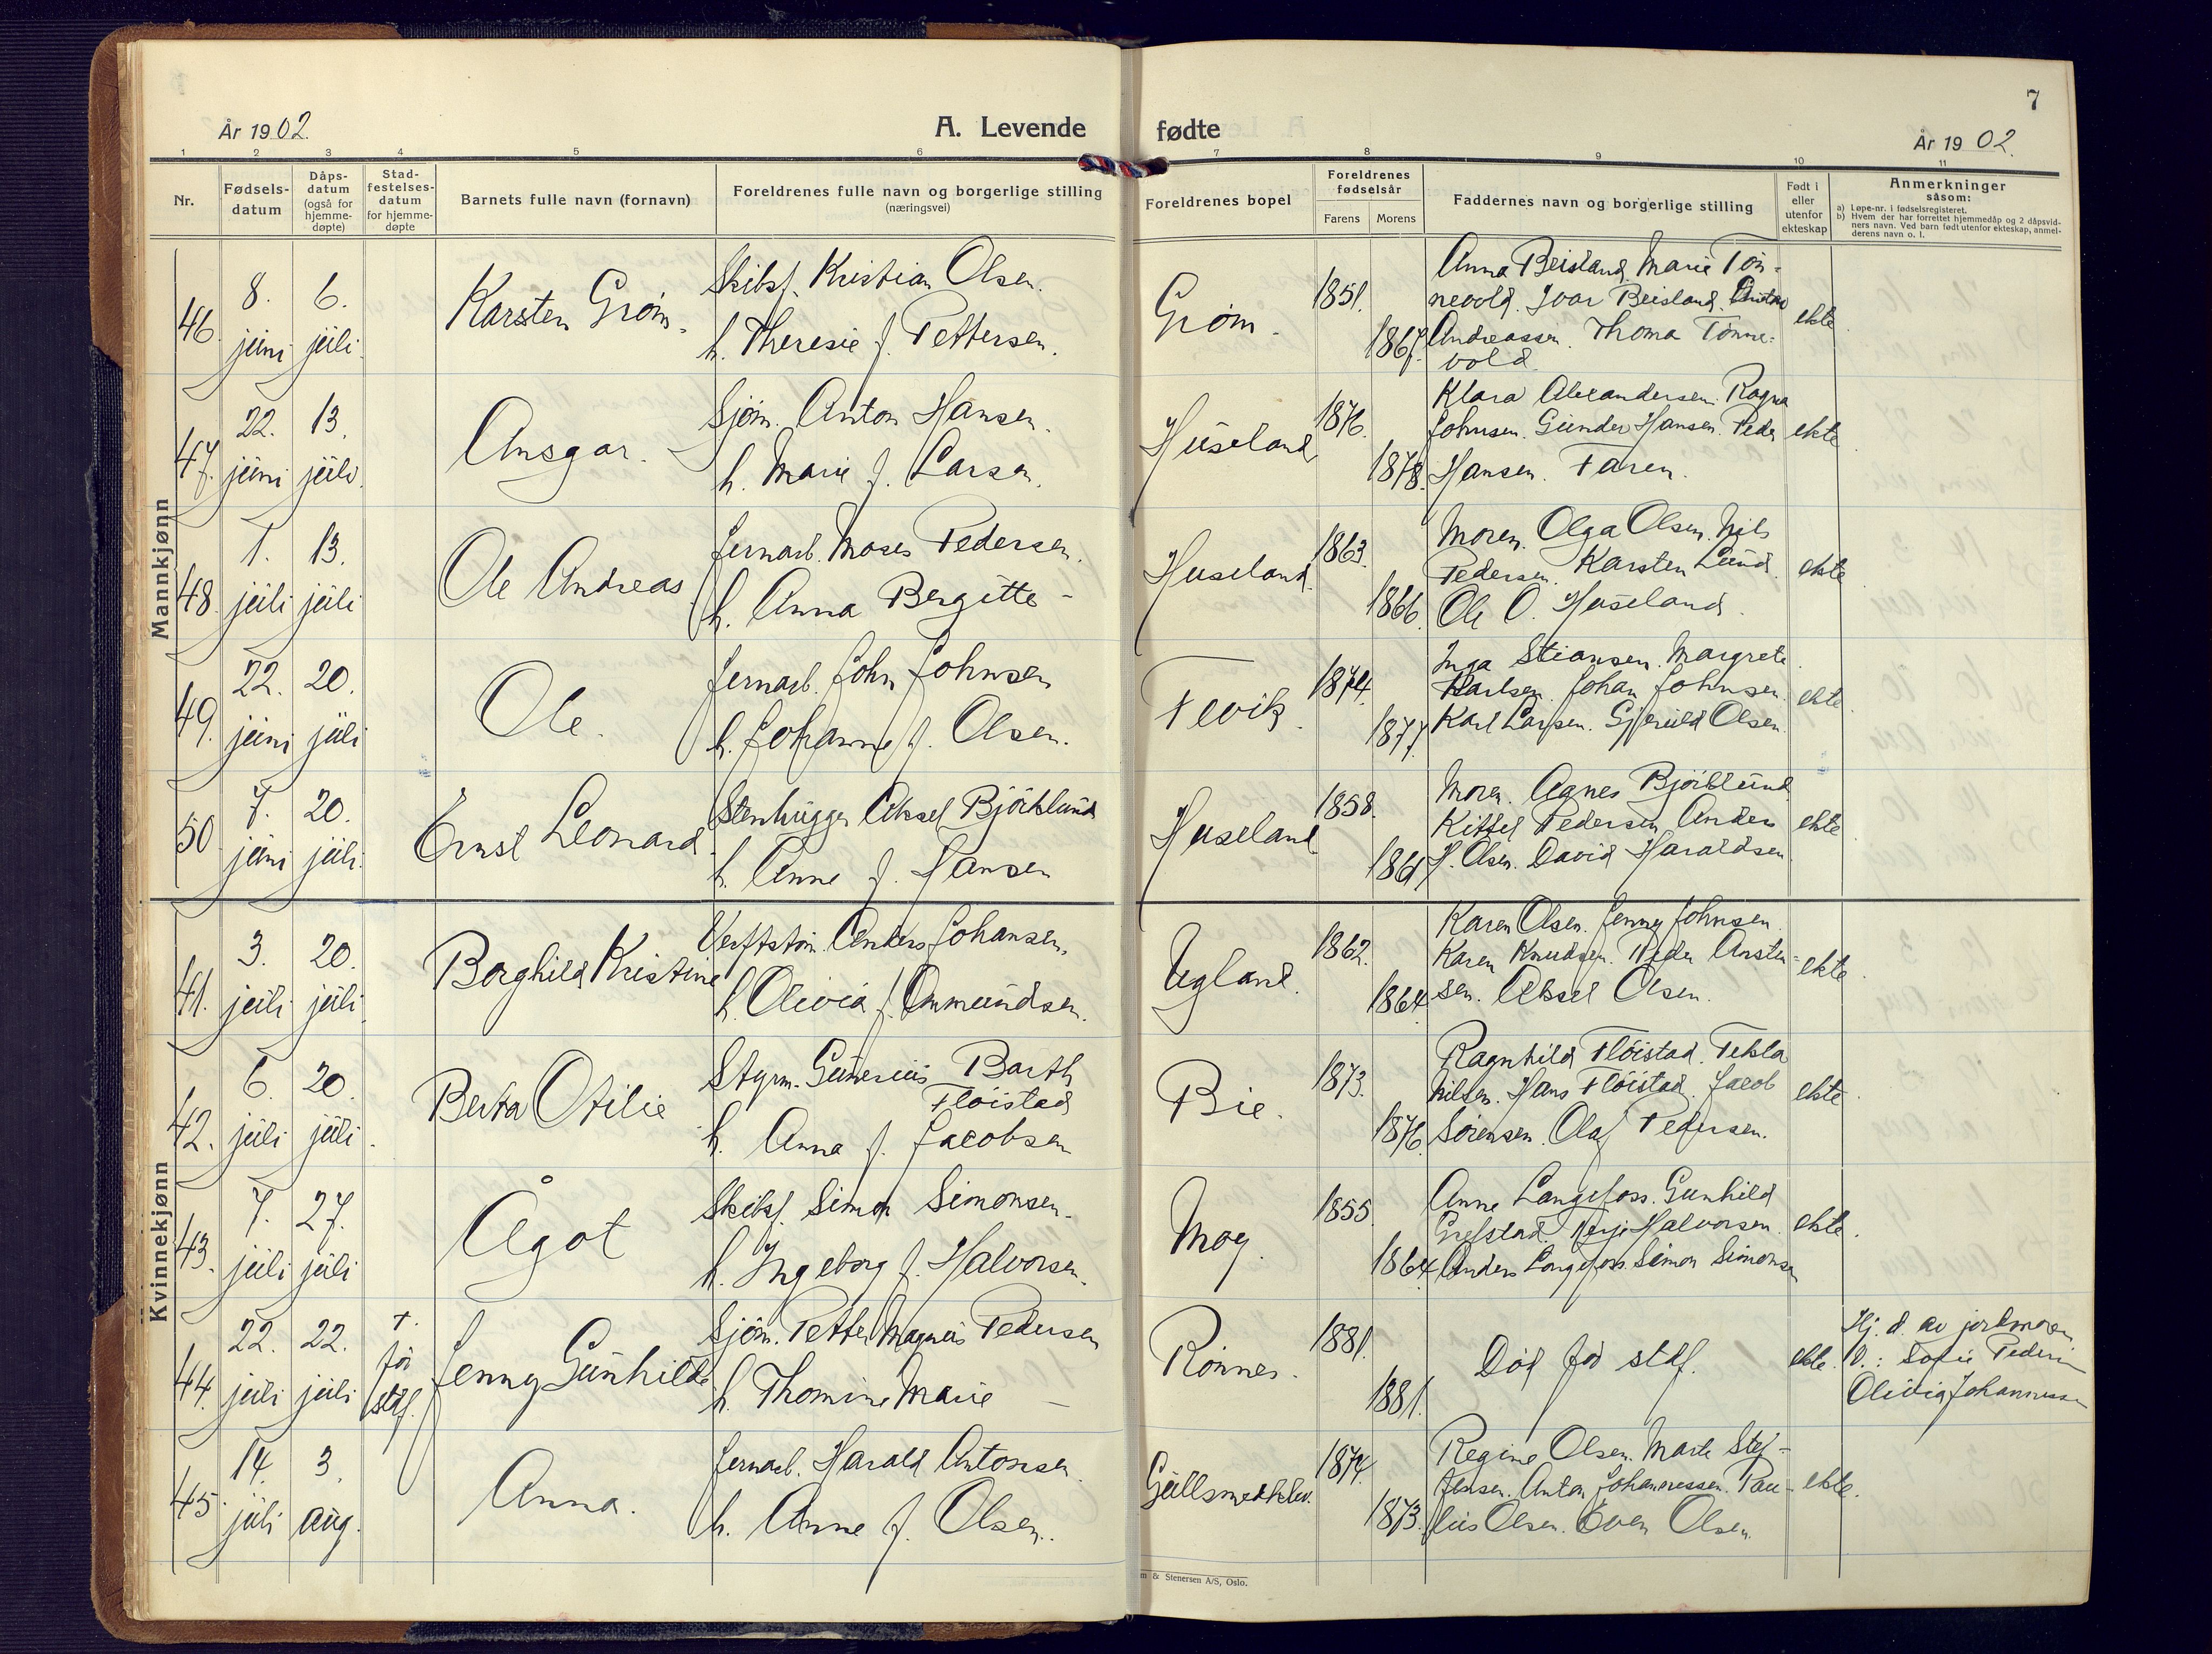 7
År 1902.
A. Levende fødte
År 1902.
1 2 3 4 5 6 7 8 9 10 11
Nr.
Fødsels-
datum
Dåps-
datum
(også for
hjemme-
døpte)
Stad-
festelses-
datum
for hjemme-
døpte
Barnets fulle navn (fornavn)
Foreldrenes fulle navn og borgerlige stilling
(næringsvei)
Foreldrenes bopel
Foreldrenes
fødselsår
Farens Morens
Faddernes navn og borgerlige stilling
Født i
eller
utenfor
ekteskap
Anmerkninger
såsom:
a) Løpe-nr. i fødselsregisteret.
b) Hvem der har forrettet hjemmedåp og 2 dåpsvid-
ners navn. Ved barn født utenfor ekteskap, anmel-
derens navn o. l.
Mannkjønn
46. 8. juni 6. juli Karsten Grøm.
Skibsf. Kristian Olsen.
h. Theresie f. Pettersen.
Grøm. 1851. 1867.
Anna Beisland Marie Tøn-
nevold. Ivar Beisland. Anton
Andreassen. Thoma Tønne-
vold.
ekte
47. 22. juni 13. juli Ansgar.
Sjøm. Anton Hansen.
h. Marie f. Larsen.
Huseland 1876. 1878.
Klara Alexandersen. Ragna
Johnsen. Gunder Hansen. Peder
Hansen. Faren.
ekte
48. 1. juli 13. juli Ole Andreas
Jernarb. Moses Pedersen.
h. Anna Bergitte -
Huseland. 1863. 1866.
Moren. Olga Olsen. Nils
Pedersen. Karsten Lund.
Ole O. Huseland.
ekte
49. 22. juni 20. juli Ole.
Jernarb. John Johnsen
h. Johanne f. Olsen.
Fevik. 1874. 1877.
Inga Stiansen. Margrete
Karlsen. Johan Johnsen.
Karl Larsen. Gjeruld Olsen.
ekte
50 7. juni 20. juli Ernst Leonard
Stenhugger Aksel Bjørklund
h. Anne f. Hansen
Huseland 1858. 1861
Moren. Agnes Bjørklund
Kittel Pedersen Anders
H. Olsen. David Haraldsen.
ekte
Kvinnekjønn
41. 3. juli 20. juli Borghild Kristine
Verftstøm. Anders Johansen.
h. Olivia f. Ommundsen.
Ugland. 1862. 1864
Karen Olsen. Jenny Johnsen.
Karen Knudsen. Peder Arsten-
sen. Aksel Olsen.
ekte
42. 6. juli 20. juli Berta Otilie
Styrm. Gunerius Barth
Fløistad
h. Anna f. Jacobsen
Bie. 1873. 1876.
Ragnhild Fløistad. Tekla
Nilsen. Hans Fløistad. Jacob
Sørensen. Olaf Pedersen.
ekte
43. 7. juli 27. juli Ågot
Skibsf. Simon Simonsen.
h. Ingeborg f. Halvorsen.
Moy. 1855 1864
Anne Langefoss. Gunhild
Grefstad. Terje Halvorsen.
Anders Langefoss. Simon Simonsen
ekte.
44. 22. juli 22. juli + før stdf. Jenny Gunhilde
Sjøm. Petter Magnus Pedersen
h. Thomine Marie -
Rønnes. 1881. 1881.
Død før stdf.
ekte.
Hj. d. av jordmoren
V.: Sofie Pedersen
Olivia Johannessen
45. 14. juli 3. aug. Anna.
Jernarb. Harald Antonsen.
h. Anne f. Olsen.
Gullsmedklev. 1874. 1873.
Regine Olsen. Marte Stef-
fensen. Anton Johannessen. Pau-
lius Olsen. Even Olsen.
ekte.
m & Stenersen A/S, Oslo.